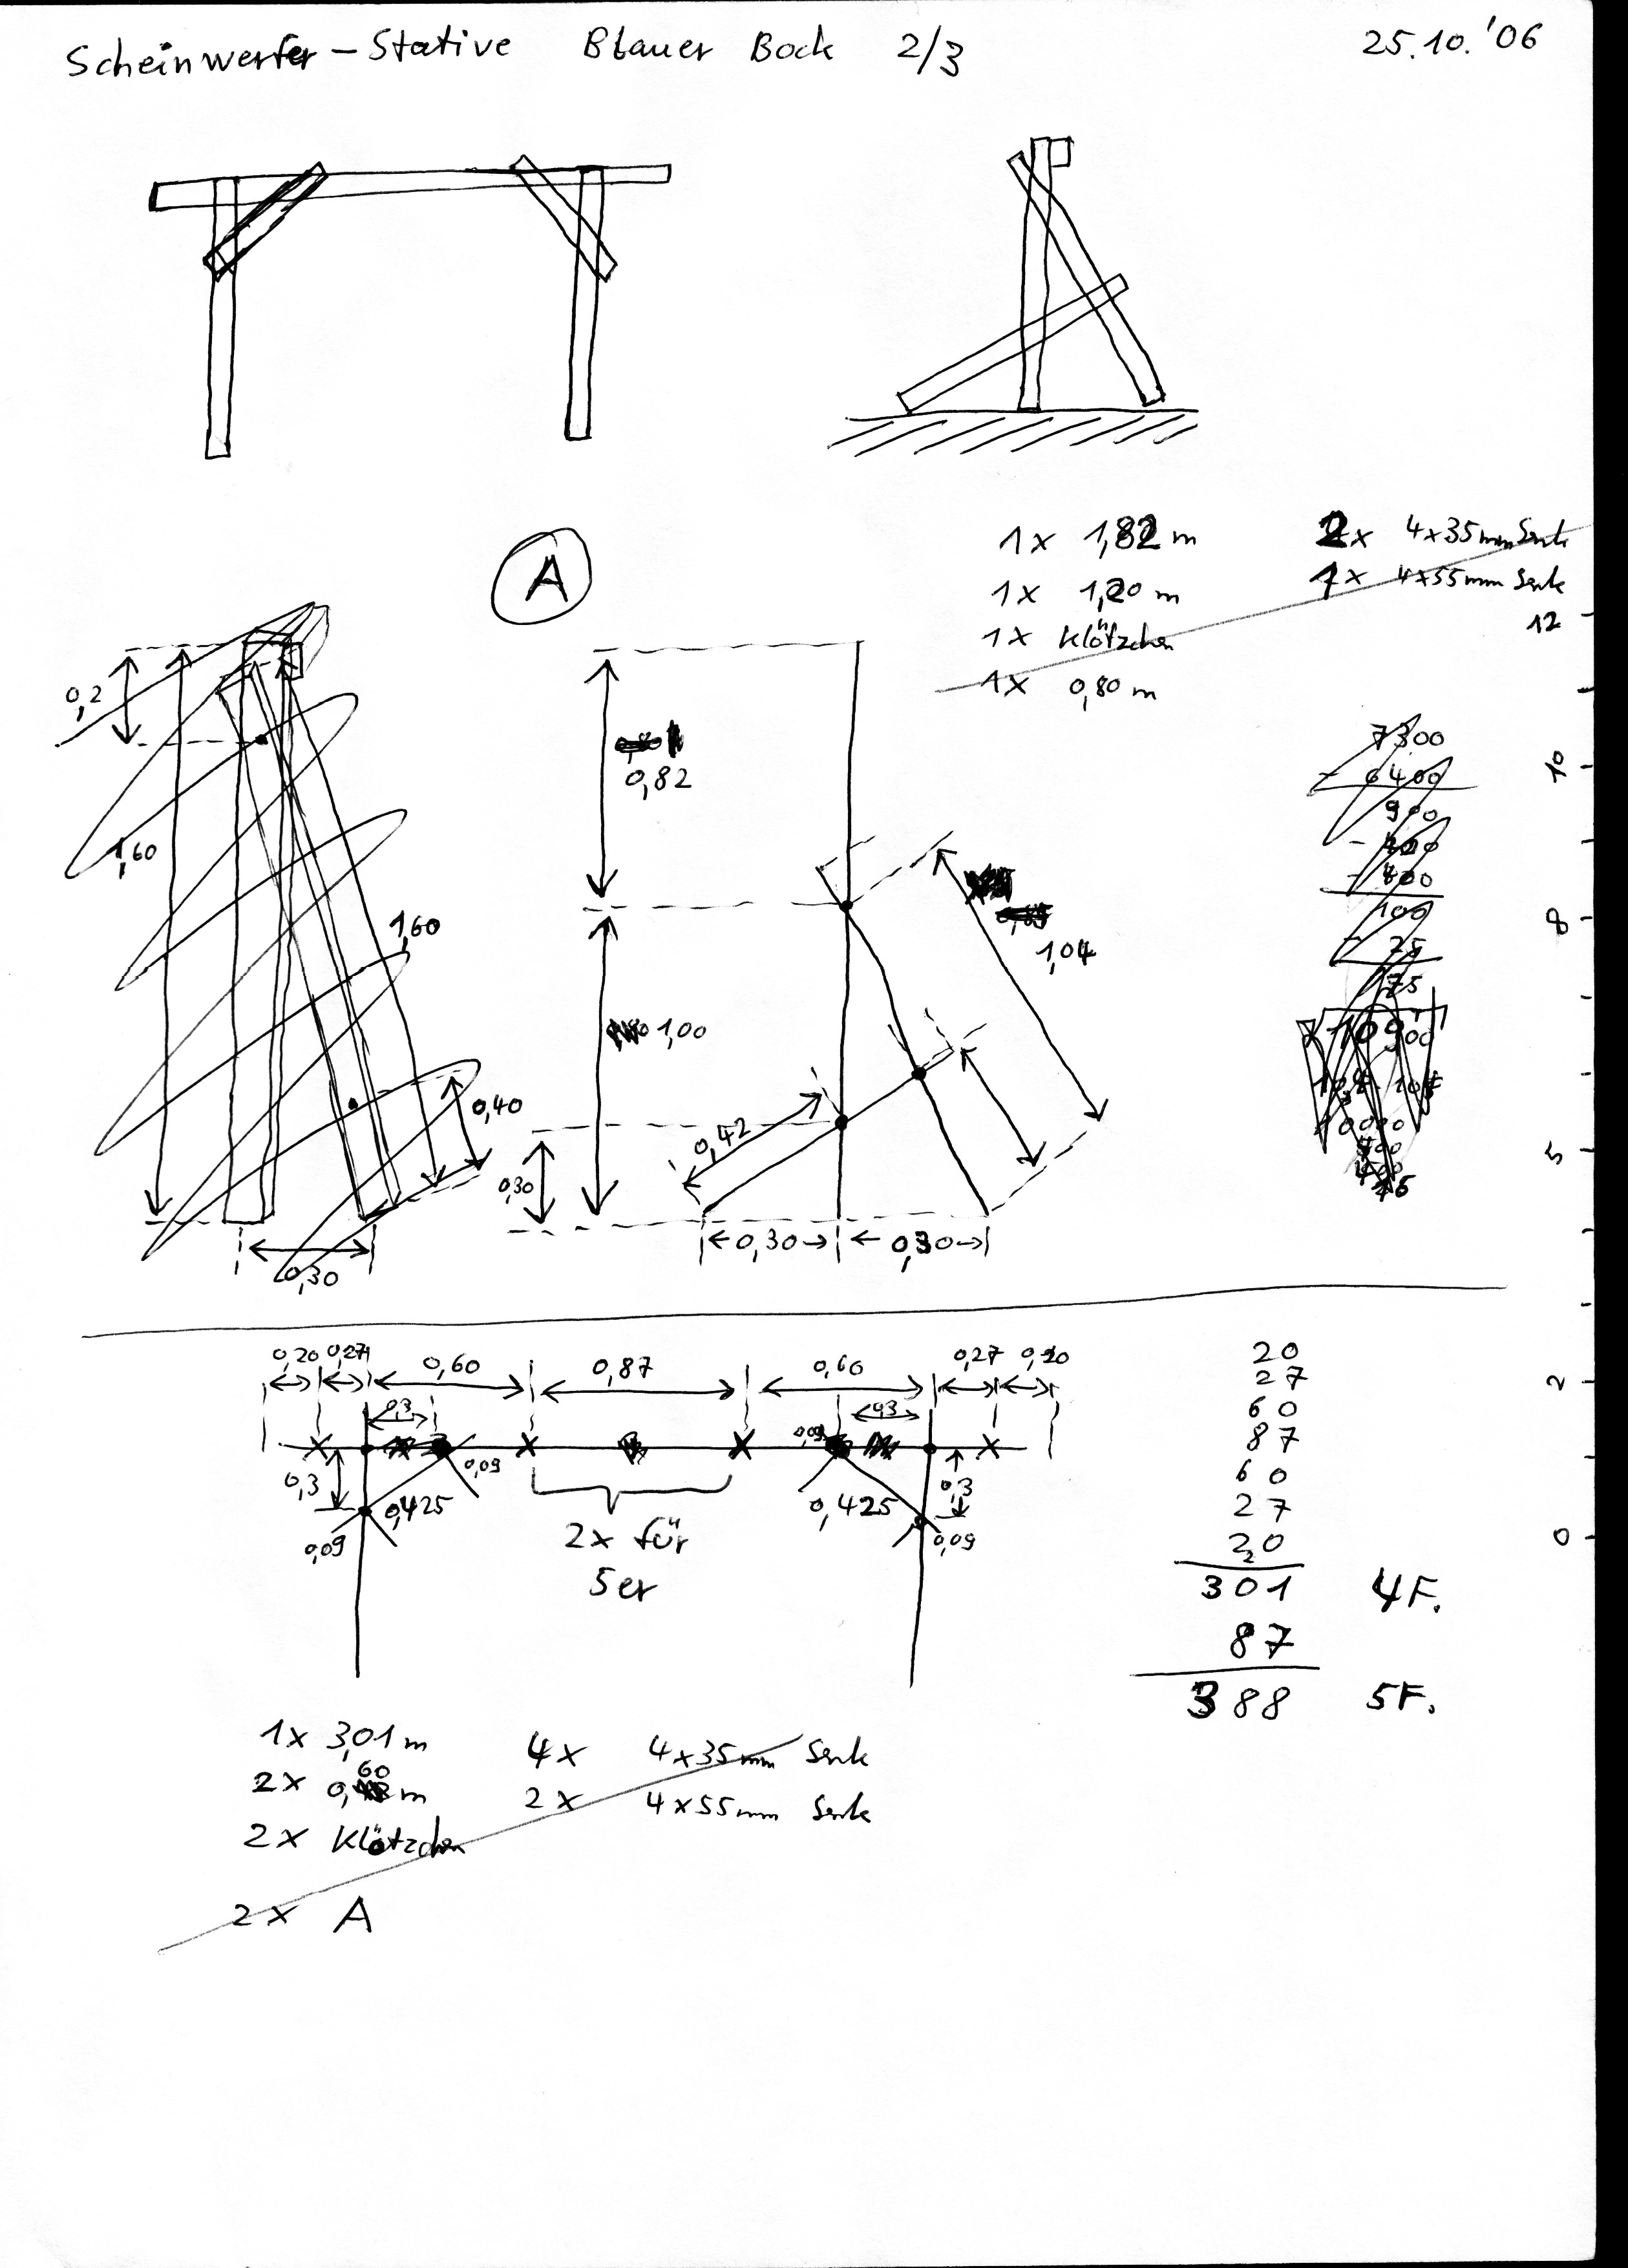 Scheinwerfer-Stative Blauer Bock 2/3 25.10.'06
A
1x 1,82 m
1x 1,20 m
1x Klötzchen
1x 0,80 m
2x 4x35mm Senk
1x 4x55mm Senk
12
10
8
5
2
0
0,2
1,60
1,60
0,40
0,30
0,82
1,00
0,30
0,42
1,04
0,30
0,30
7300
- 6400
900
100
25
75
0,20 0,27 0,60 0,87 0,60 0,27 0,20
0,3
0,3
0,09
0,09
0,3
0,3
0,425
0,425
0,09
0,09
2x für
5er
20
27
60
87
60
27
20
301 4F.
87
388 5F.
1x 3,01 m
2x 0,60 m
2x Klötzchen
2x A
4x 4x35mm Senk
2x 4x55mm Senk